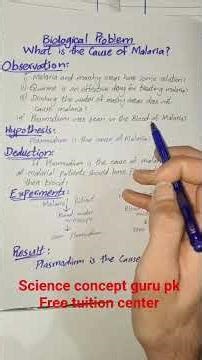 Biological Problem
What is the Cause of Malaria?
Observation:
i) Malaria and marshy areas have some relation
ii) Quinine is an effective drug for treating malaria
iii) Drinking the water of marshy areas does not
cause malaria
iv) Plasmodium was seen in the Blood of Malaria
Hypothesis:
Plasmodium is the cause of Malaria
Deduction:
If Plasmodium is the cause of malaria
all malarial patients should have
their blood
Experiment:
Malaria Patient
Blood under
microscope
Plasmodium
Result:
Plasmodium is the Cause
Science concept guru pk
Free tuition center